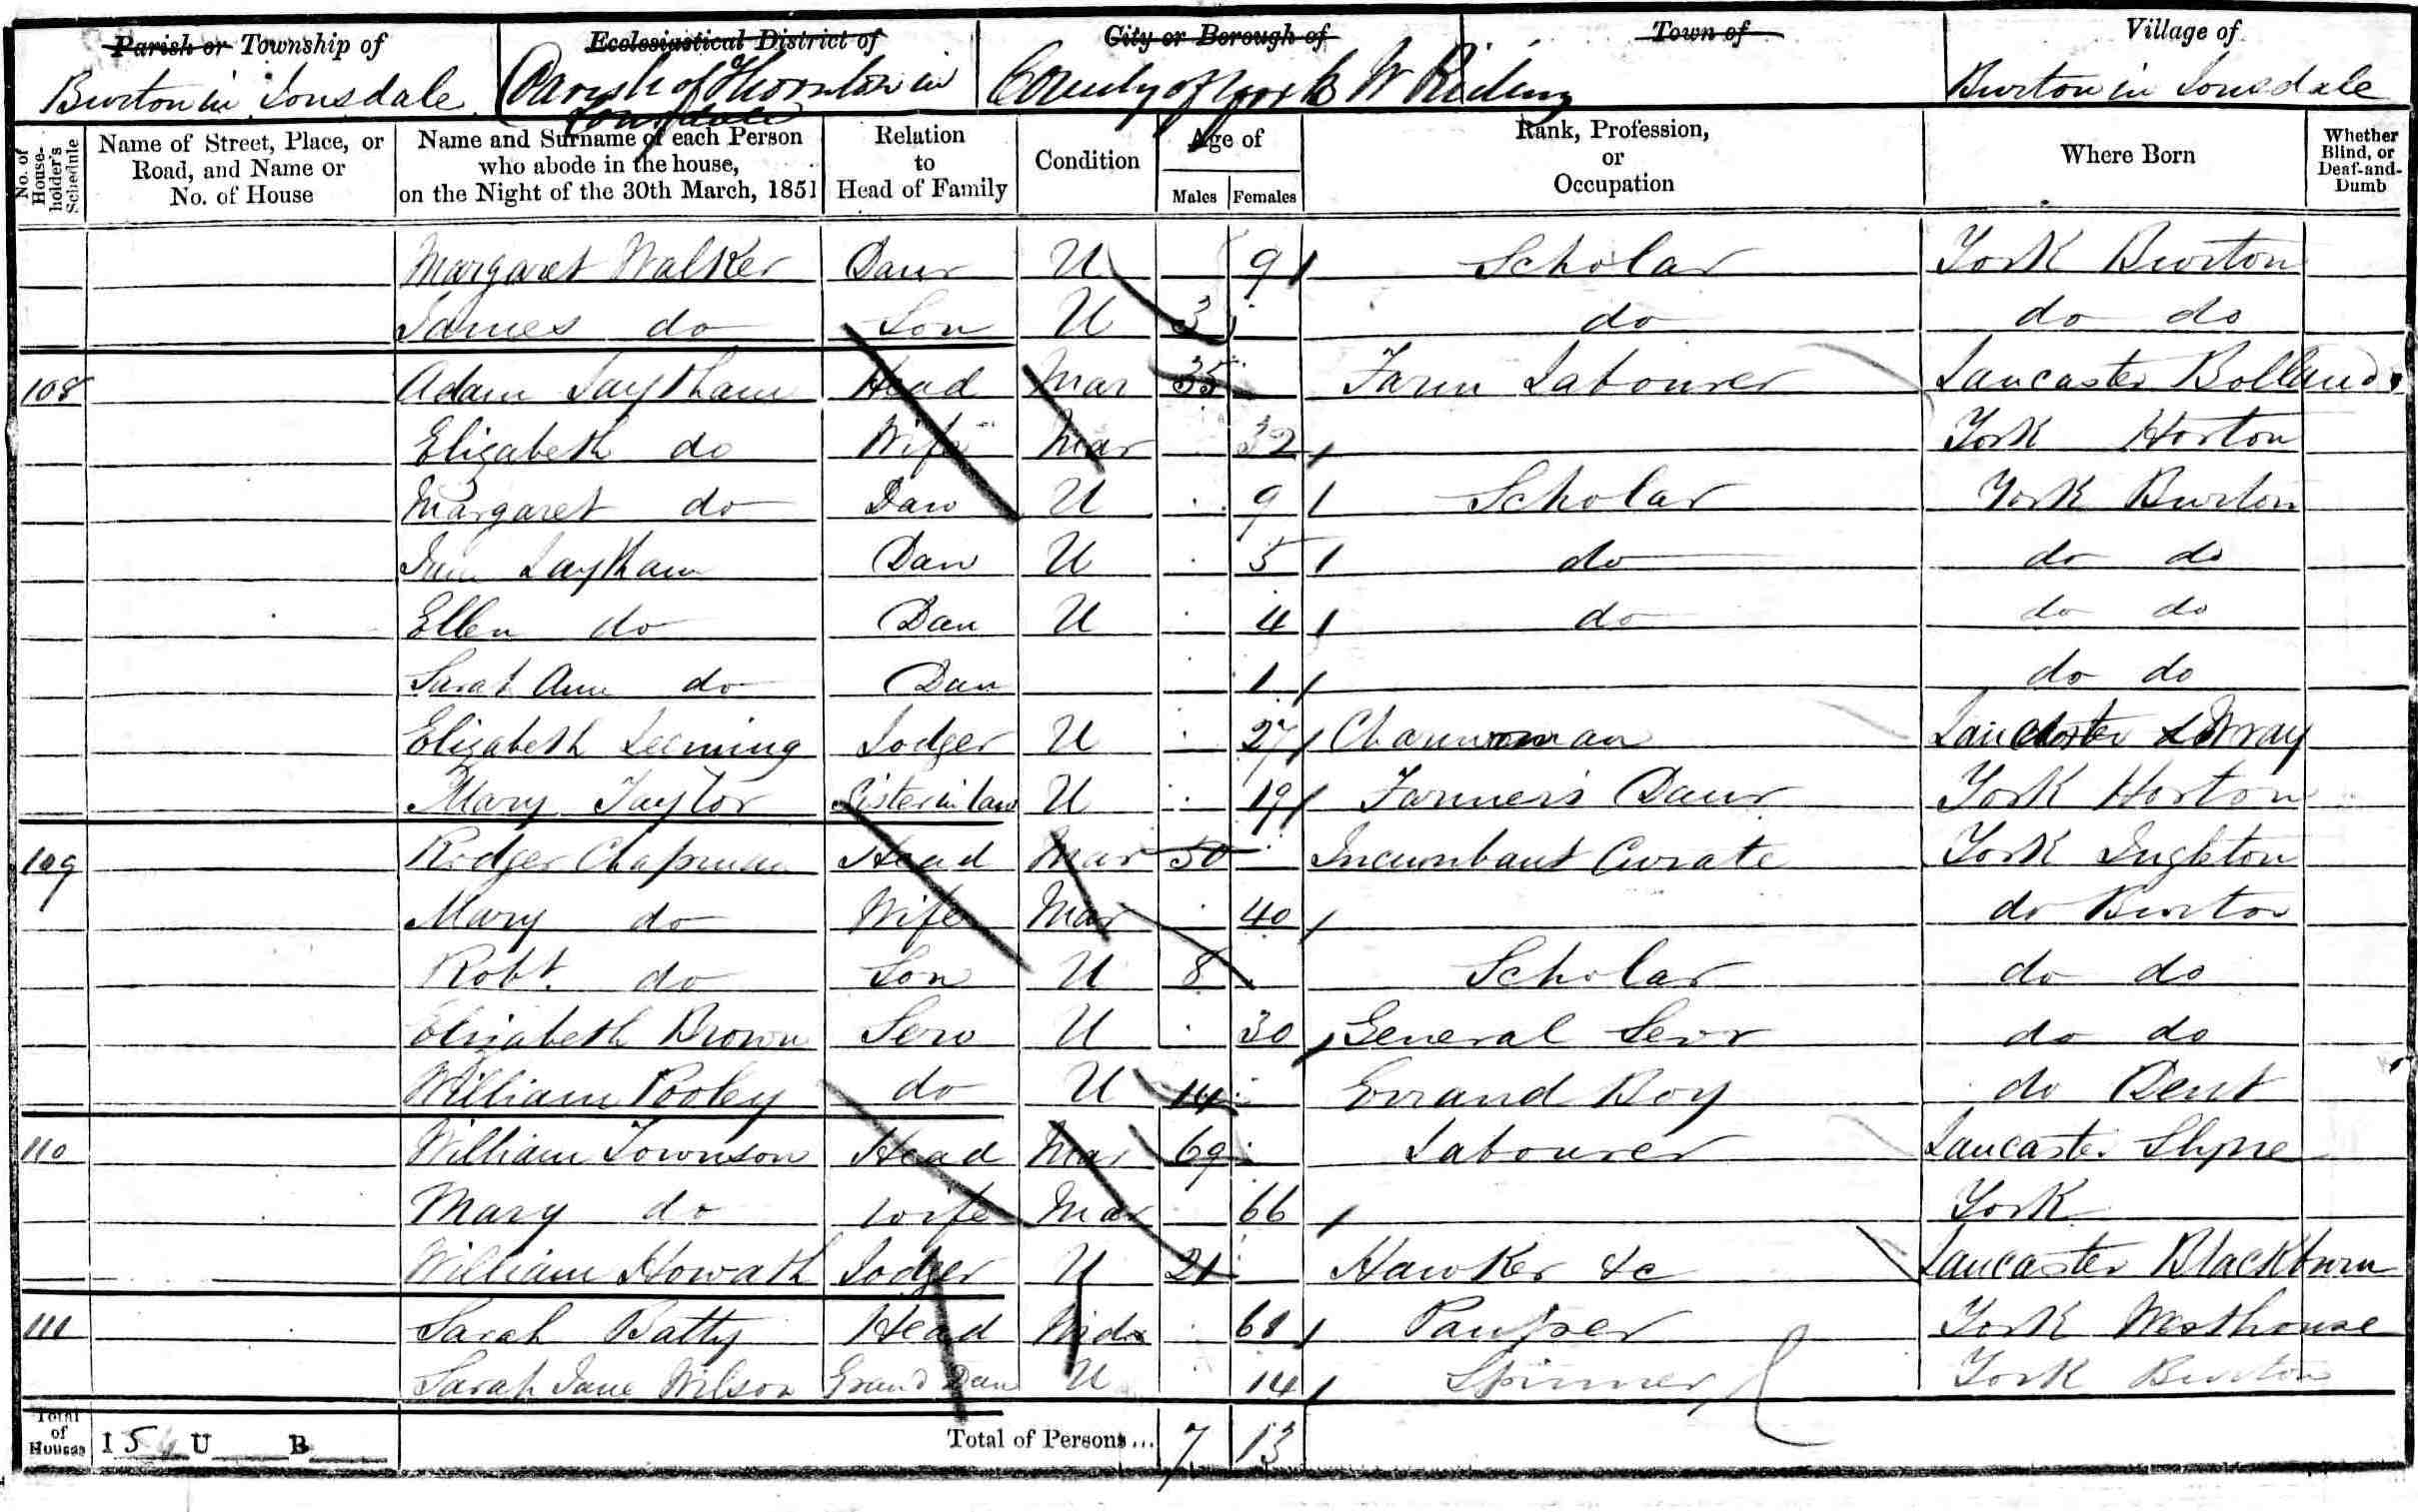 Parish or Township of Ecclesiastical District of City or Borough of Town of Village of
Burton in Lonsdale Parish of Thornton in Lonsdale County of York W Riding Burton in Lonsdale
No. of House-holder's Schedule
Name of Street, Place, or Road, and Name or No. of House
Name and Surname of each Person who abode in the house, on the Night of the 30th March, 1851
Relation to Head of Family
Condition
Age of
Males Females
Rank, Profession, or Occupation
Where Born
Whether Blind, or Deaf-and-Dumb
Margaret Walker Daur U 9 Scholar York Burton
James do Son U 3 do do do
108 Adam Laytham Head Mar 35 Farm Labourer Lancaster Bolland
Elizabeth do Wife Mar 32 York Horton
Margaret do Daur U 9 Scholar York Burton
Laytham Dau U 5 do do do
Ellen do Dau U 4 do do do
Sarah Ann do Dau 1 do do
Elizabeth Leeming Lodger U 27 Charwoman Lancaster Wray
Mary Taylor Sister in law U 19 Farmer's Daur York Horton
109 Rodger Chapman Head Mar 50 Incumbant Curate York Ingleton
Mary do Wife Mar 40 do Burton
Robt. do Son U 8 Scholar do do
Elizabeth Brown Serv U 30 General Serv do do
William Pooley do U 14 Errand Boy do Dent
110 William Townson Head Mar 69 Labourer Lancaster Slyne
Mary do wife Mar 66 York
William Howath Lodger U 21 Hawker &c Lancaster Blackburn
111 Sarah Batty Head Wid 61 Pauper York Westhouse
Sarah Jane Wilson Grand Dau U 14 Spinner York Burton
Total of Houses I 5 U B Total of Persons... 7 13